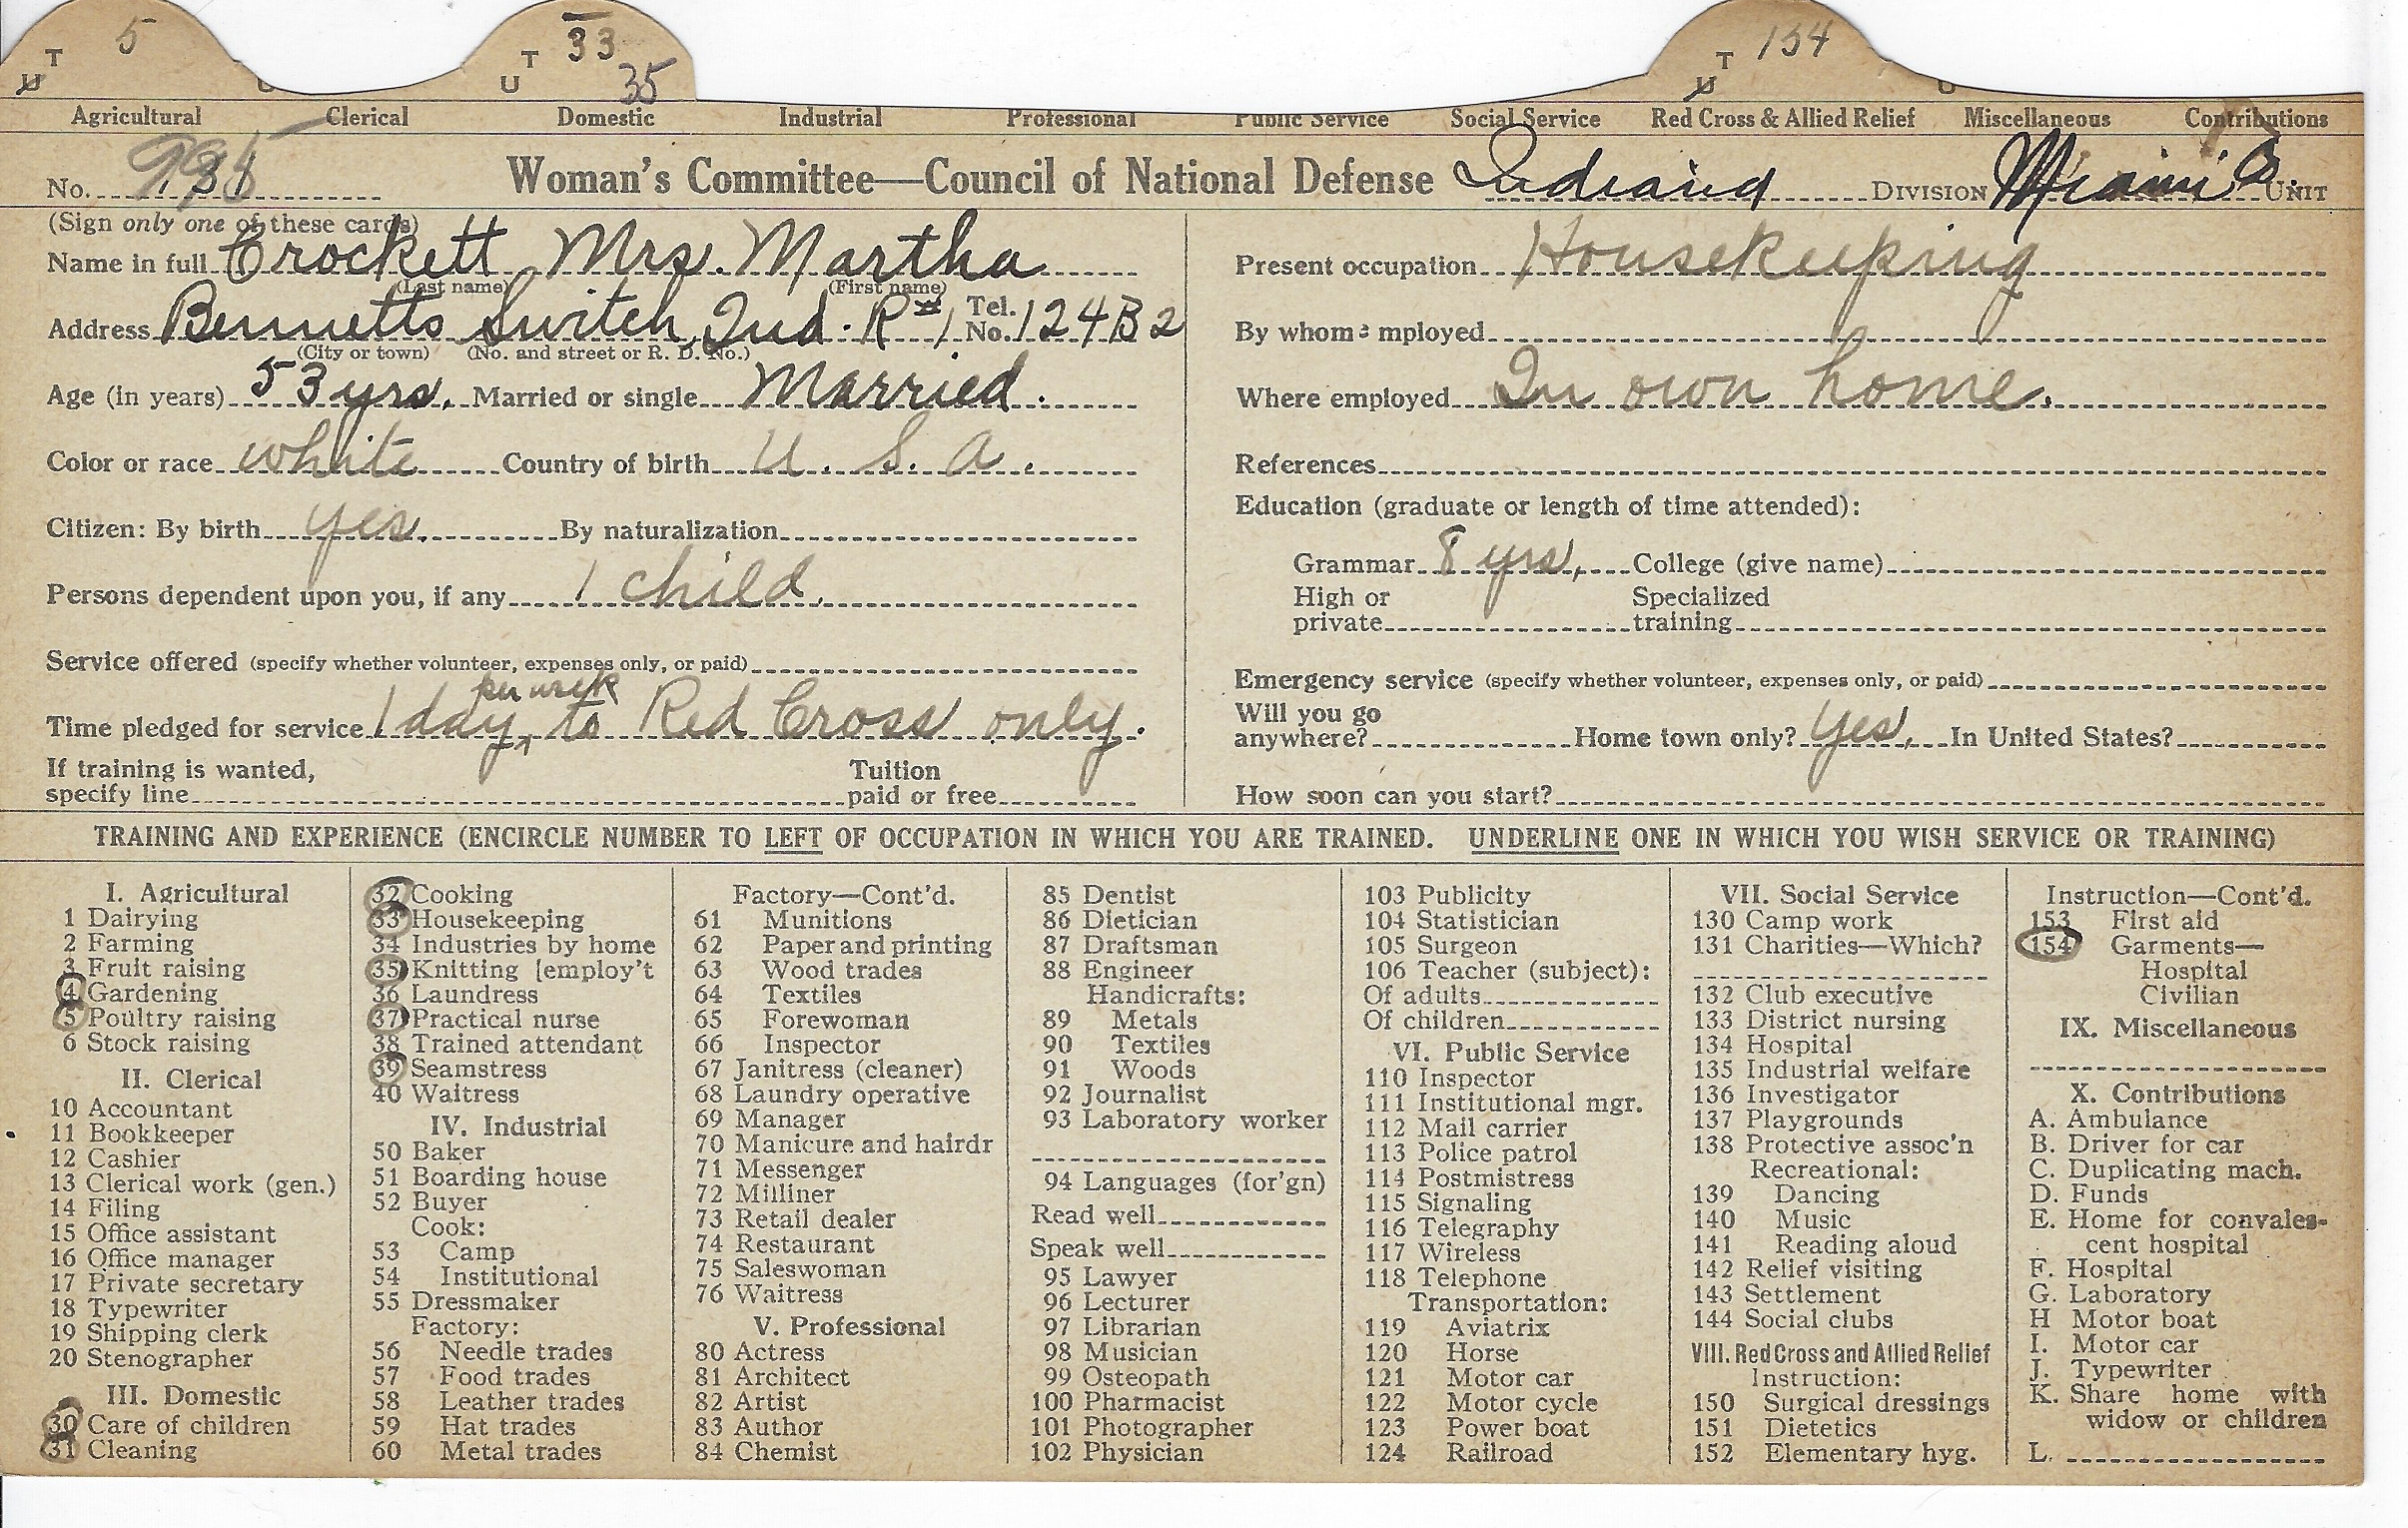 T 5 T 33 T 154
U U U 35 U U
Agricultural Clerical Domestic Industrial Professional Public Service Social Service Red Cross & Allied Relief Miscellaneous Contributions
No. Woman's Committee—Council of National Defense Indiana DIVISION Miami UNIT
(Sign only one of these cards)
Name in full Crockett Mrs. Martha
(Last name) (First name)
Address Bennetts Switch, Ind. R#1 Tel. No. 124B2
(City or town) (No. and street or R. D. No.)
Age (in years) 53 yrs. Married or single Married.
Color or race white Country of birth U. S. A.
Citizen: By birth yes. By naturalization
Persons dependent upon you, if any 1 child.
Service offered (specify whether volunteer, expenses only, or paid)
per week
Time pledged for service 1 day, to Red Cross only.
If training is wanted,
specify line
Tuition
paid or free
Present occupation Housekeeping
By whom employed
Where employed In own home.
References
Education (graduate or length of time attended):
Grammar 8 yrs, College (give name)
High or
private
Specialized
training
Emergency service (specify whether volunteer, expenses only, or paid)
Will you go
anywhere? Home town only? Yes, In United States?
How soon can you start?
TRAINING AND EXPERIENCE (ENCIRCLE NUMBER TO LEFT OF OCCUPATION IN WHICH YOU ARE TRAINED. UNDERLINE ONE IN WHICH YOU WISH SERVICE OR TRAINING)
I. Agricultural
1 Dairying
2 Farming
3 Fruit raising
4 Gardening
5 Poultry raising
6 Stock raising
II. Clerical
10 Accountant
11 Bookkeeper
12 Cashier
13 Clerical work (gen.)
14 Filing
15 Office assistant
16 Office manager
17 Private secretary
18 Typewriter
19 Shipping clerk
20 Stenographer
III. Domestic
30 Care of children
31 Cleaning
32 Cooking
33 Housekeeping
34 Industries by home
35 Knitting [employ't
36 Laundress
37 Practical nurse
38 Trained attendant
39 Seamstress
40 Waitress
IV. Industrial
50 Baker
51 Boarding house
52 Buyer
Cook:
53 Camp
54 Institutional
55 Dressmaker
Factory:
56 Needle trades
57 Food trades
58 Leather trades
59 Hat trades
60 Metal trades
Factory—Cont'd.
61 Munitions
62 Paper and printing
63 Wood trades
64 Textiles
65 Forewoman
66 Inspector
67 Janitress (cleaner)
68 Laundry operative
69 Manager
70 Manicure and hairdr
71 Messenger
72 Milliner
73 Retail dealer
74 Restaurant
75 Saleswoman
76 Waitress
V. Professional
80 Actress
81 Architect
82 Artist
83 Author
84 Chemist
85 Dentist
86 Dietician
87 Draftsman
88 Engineer
Handicrafts:
89 Metals
90 Textiles
91 Woods
92 Journalist
93 Laboratory worker
94 Languages (for'gn)
Read well
Speak well
95 Lawyer
96 Lecturer
97 Librarian
98 Musician
99 Osteopath
100 Pharmacist
101 Photographer
102 Physician
103 Publicity
104 Statistician
105 Surgeon
106 Teacher (subject):
Of adults
Of children
VI. Public Service
110 Inspector
111 Institutional mgr.
112 Mail carrier
113 Police patrol
114 Postmistress
115 Signaling
116 Telegraphy
117 Wireless
118 Telephone
Transportation:
119 Aviatrix
120 Horse
121 Motor car
122 Motor cycle
123 Power boat
124 Railroad
VII. Social Service
130 Camp work
131 Charities—Which?
132 Club executive
133 District nursing
134 Hospital
135 Industrial welfare
136 Investigator
137 Playgrounds
138 Protective assoc'n
Recreational:
139 Dancing
140 Music
141 Reading aloud
142 Relief visiting
143 Settlement
144 Social clubs
VIII. Red Cross and Allied Relief
Instruction:
150 Surgical dressings
151 Dietetics
152 Elementary hyg.
Instruction—Cont'd.
153 First aid
154 Garments—
Hospital
Civilian
IX. Miscellaneous
X. Contributions
A. Ambulance
B. Driver for car
C. Duplicating mach.
D. Funds
E. Home for convales-
cent hospital
F. Hospital
G. Laboratory
H Motor boat
I. Motor car
J. Typewriter
K. Share home with
widow or children
L.